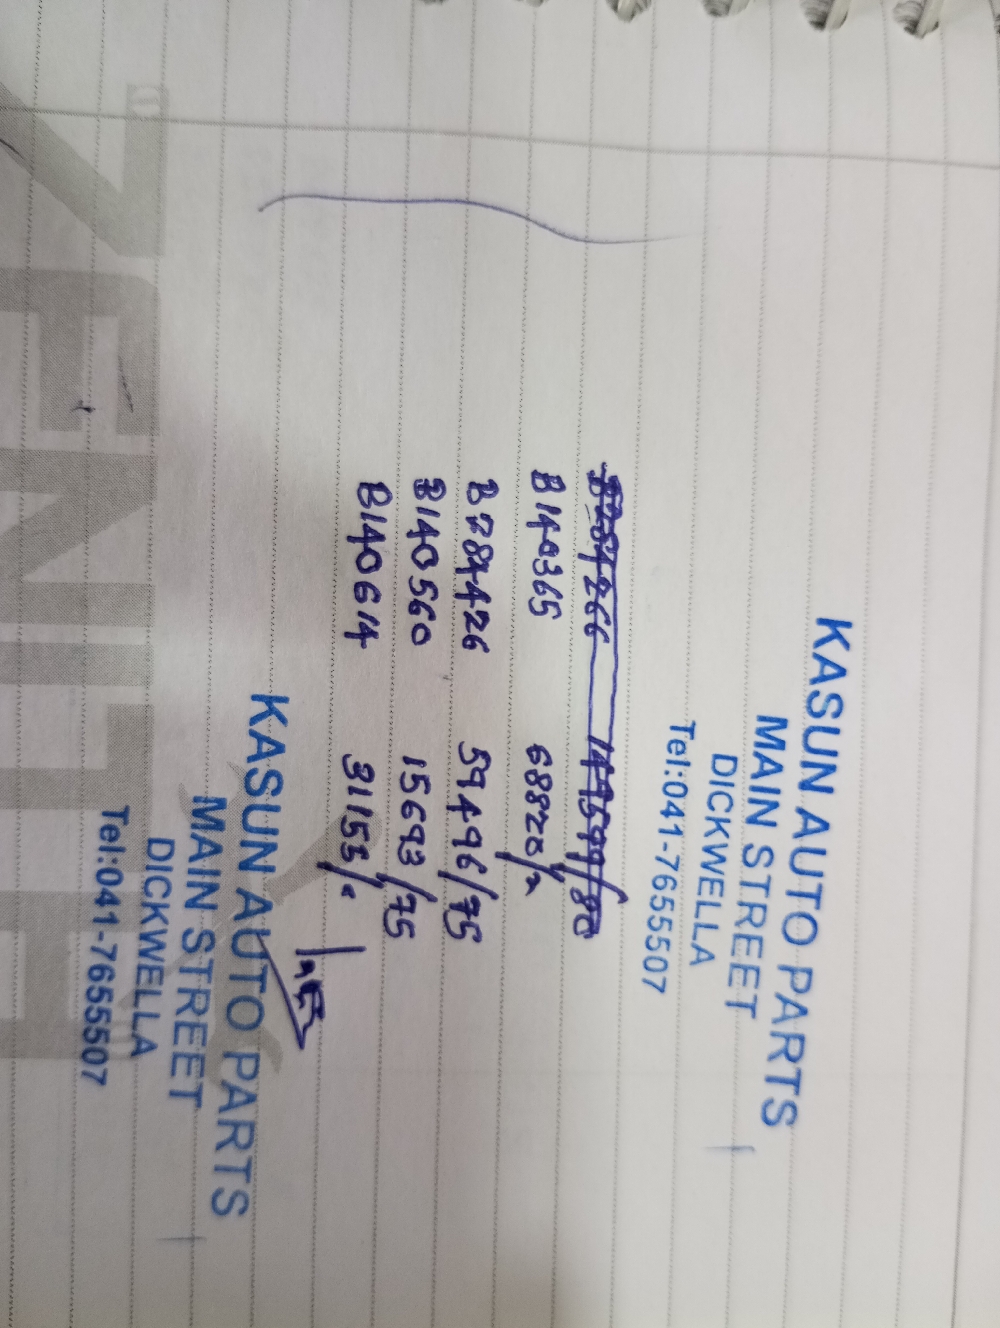 KASUN AUTO PARTS
MAIN STREET
DICKWELLA
Tel:041-7655507
B140365 68820/-
B284426 59496/75
B140560 15693/75
B140614 31155/-
KASUN AUTO PARTS
MAIN STREET
DICKWELLA
Tel:041-7655507